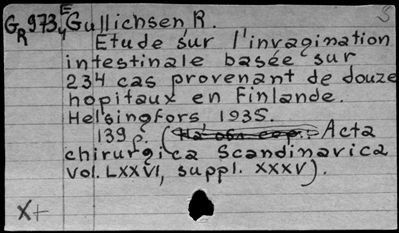 GR973yE Gullichsen, R.
Etude sur l'invagination
intestinale basée sur
234 cas provenant de douze
hopitaux en Finlande.
Helsingfors 1935.
139 p. (На обл. сер.: Acta
chirurgica Scandinavica
vol. LXXVI, suppl. XXXV).
X+